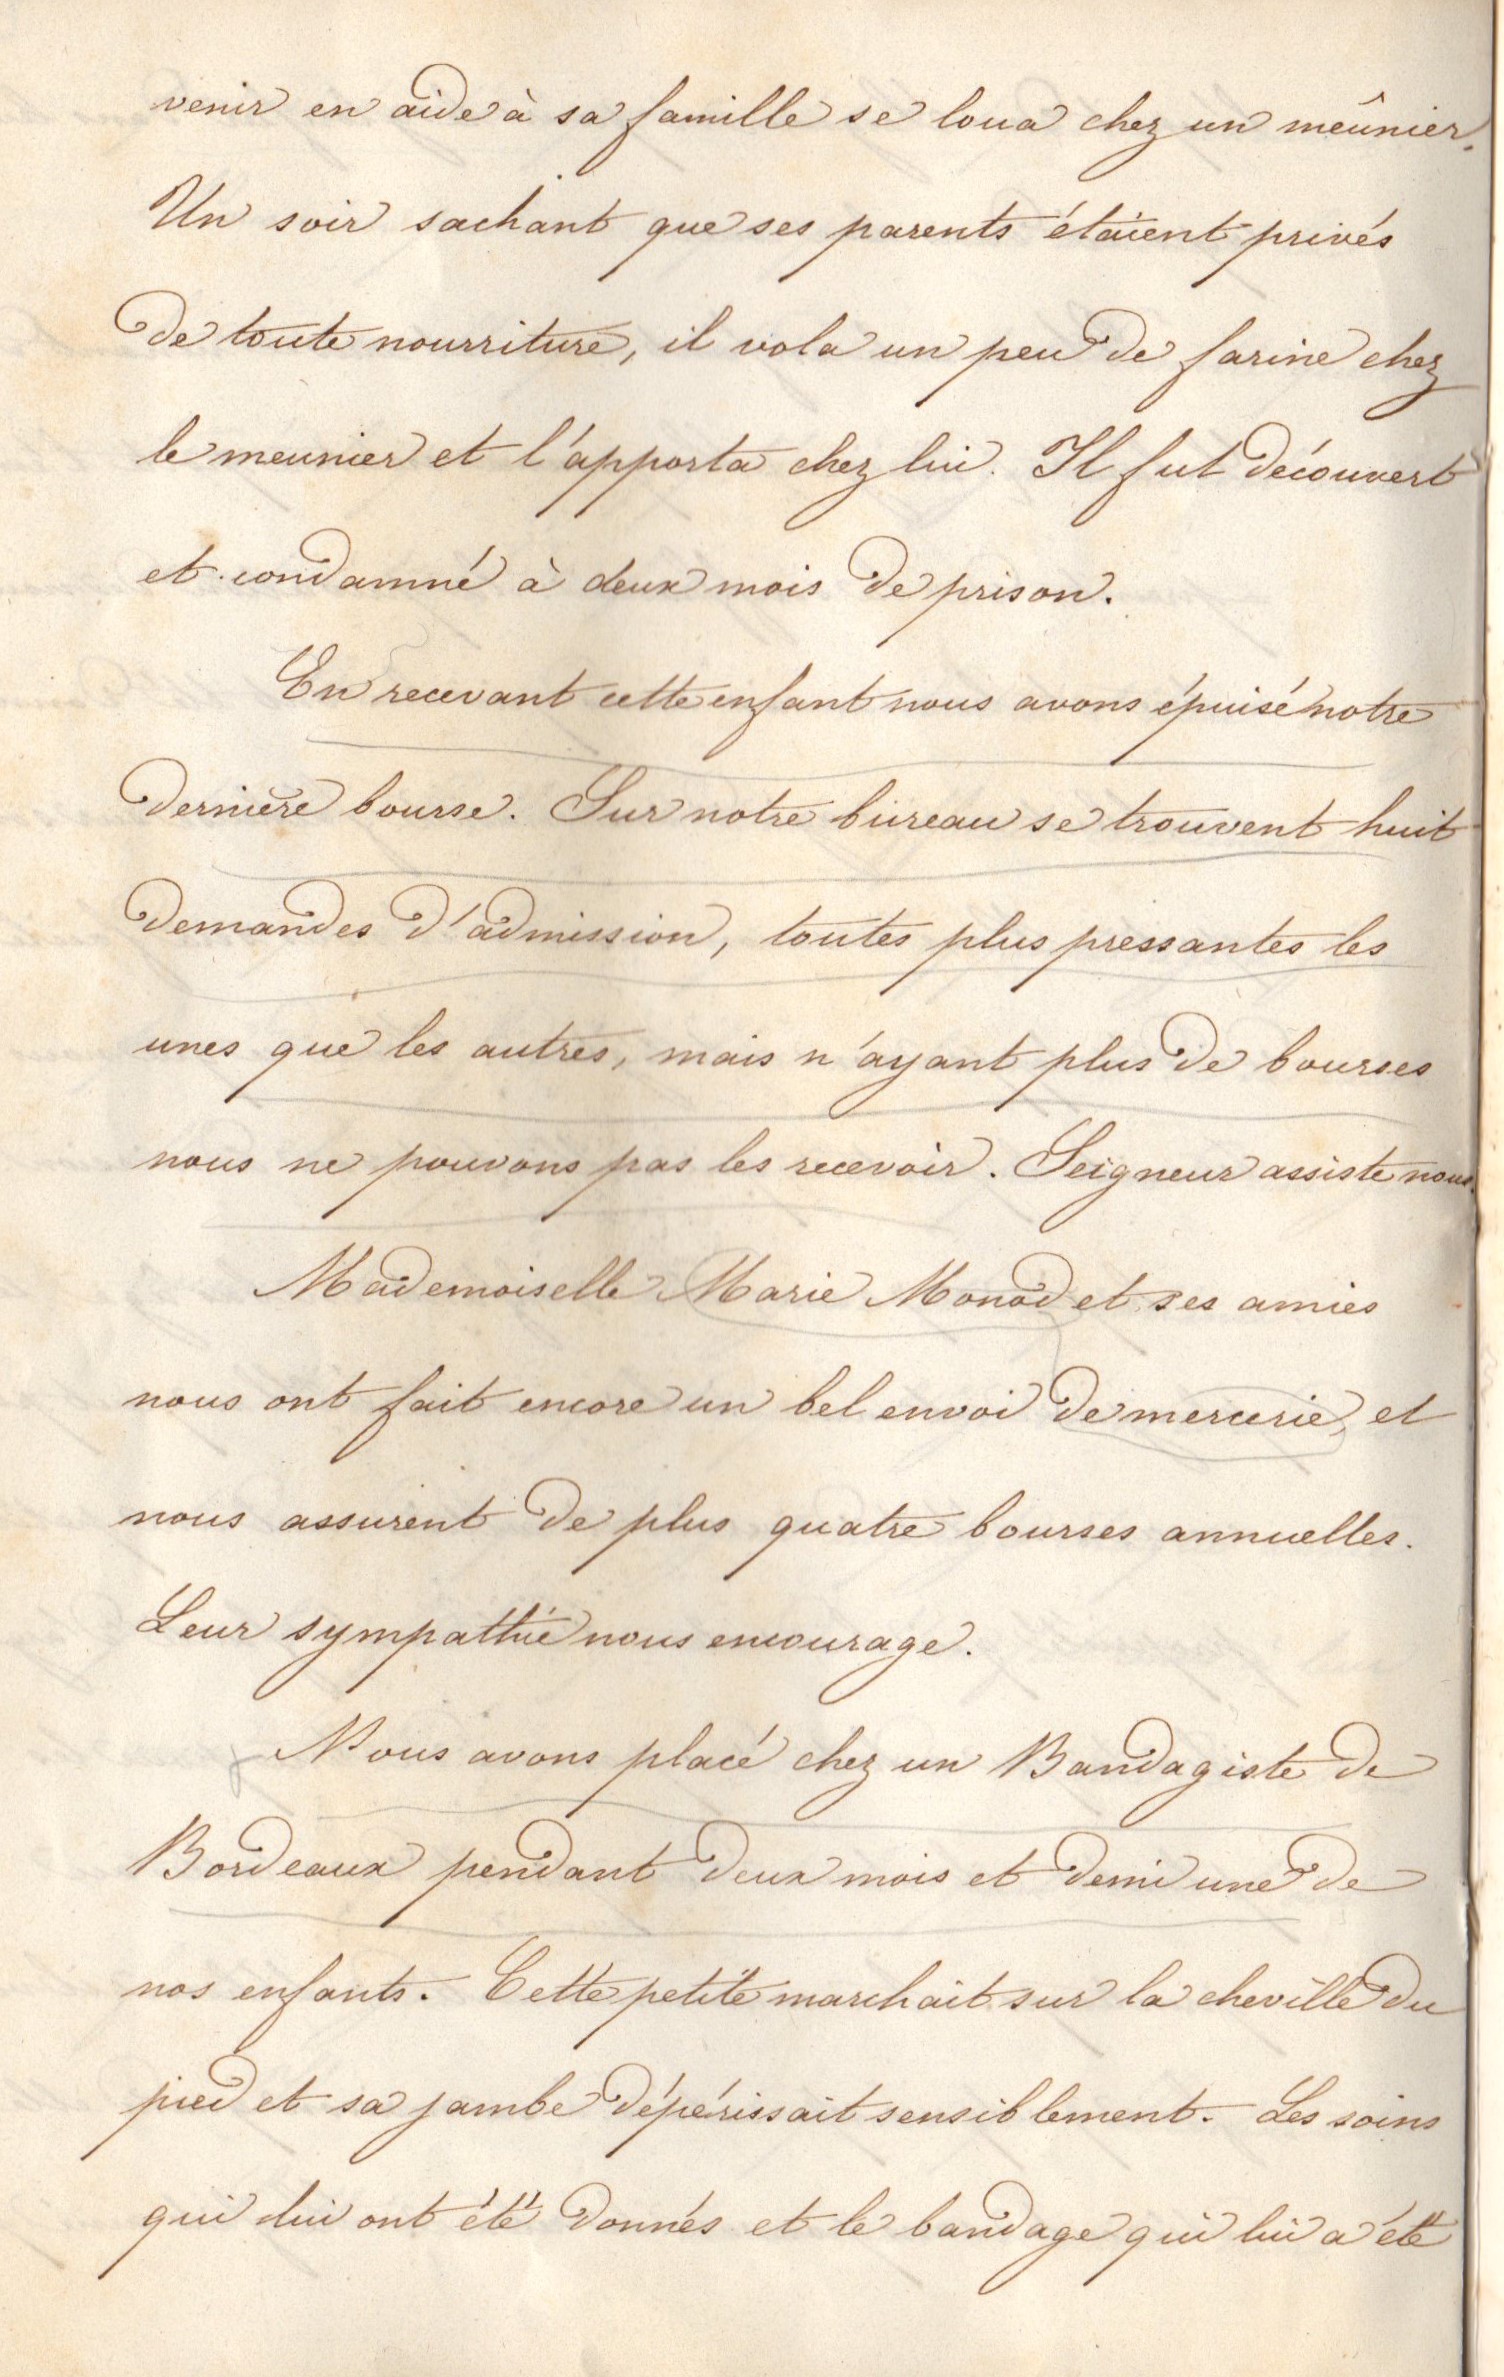 venir en aide à sa famille se loua chez un meûnier.
Un soir sachant que ses parents étaient privés
de toute nourriture, il vola un peu de farine chez
le meunier et l'apporta chez lui. Il fut découvert
et condamné à deux mois de prison.
En recevant cette enfant nous avons épuisé notre
dernière bourse. Sur notre bureau se trouvent huit
demandes d'admission, toutes plus pressantes les
unes que les autres, mais n'ayant plus de bourses
nous ne pouvons pas les recevoir. Seigneur assiste nous.
Mademoiselle Marie Monod et ses amies
nous ont fait encore un bel envoi de mercerie, et
nous assurent de plus quatre bourses annuelles.
Leur sympathie nous encourage.
Nous avons placé chez un Bandagiste de
Bordeaux pendant deux mois et demi une de
nos enfants. Cette petite marchait sur la cheville du
pied et sa jambe dépérissait sensiblement. Les soins
qui lui ont été donnés et le bandage qui lui a été